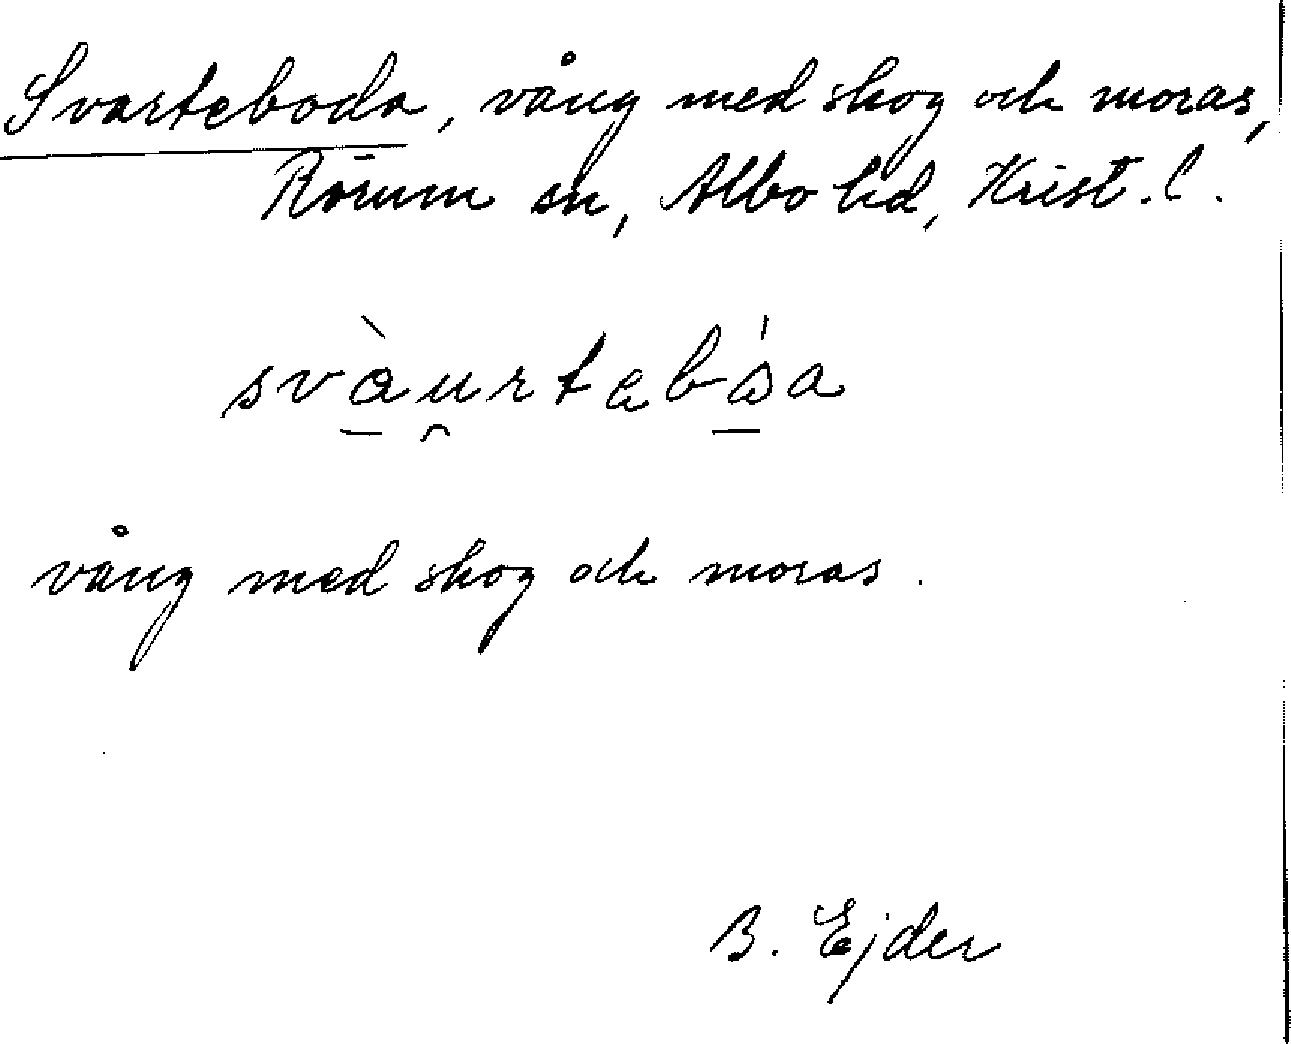 Svarteboda, vång med skog och moras,
Rörum sn, Albo hd, Krist. l.
svàu̯rtabása
vång med skog och moras.
B. Ejder